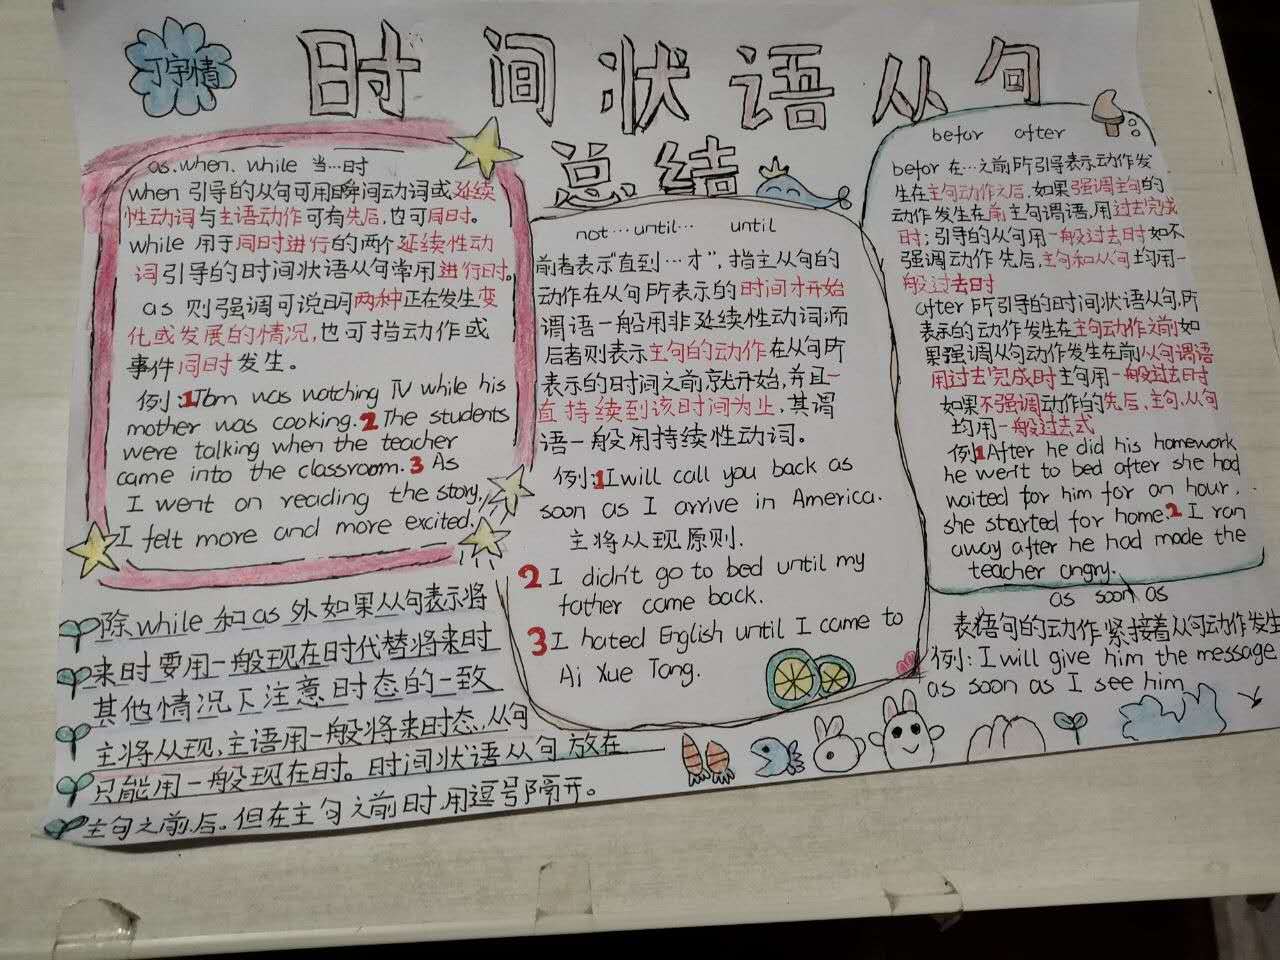 丁宇情
时间状语从句
总结
as.when. while 当…时
when 引导的从句可用瞬间动词或延续
性动词与主语动作可有先后,也可同时。
while 用于同时进行的两个延续性动
词引导的时间状语从句常用进行时。
as 则强调可说明两种正在发生变
化或发展的情况,也可指动作或
事件同时发生。
例:1Tom was watching TV while his
mother was cooking.2 The students
were talking when the teacher
came into the classroom.3 As
I went on reading the story,
I felt more and more excited.
除while 和as 外如果从句表示将
来时要用一般现在时代替将来时
其他情况下注意时态的一致
主将从现,主语用一般将来时态,从句
只能用一般现在时。时间状语从句放在
主句之前.后。但在主句之前时用逗号隔开。
not…until… until
前者表示“直到…才”,指主从句的
动作在从句所表示的时间才开始
谓语一般用非延续性动词而
后者则表示主句的动作在从句所
表示的时间之前就开始,并且一
直持续到该时间为止,其谓
语一般用持续性动词。
例:1I will call you back as
soon as I arrive in America.
主将从现原则.
2 I didn't go to bed until my
father came back.
3 I hated English until I came to
Ai Xue Tang.
befor after
befor 在…之前所引导表示动作发
生在主句动作之后.如果强调主句的
动作发生在前主句谓语,用过去完成
时;引导的从句用一般过去时如不
强调动作先后,主句和从句均用一
般过去时
after所引导的时间状语从句,所
表示的动作发生在主句动作之前如
果强调从句动作发生在前从句谓语
用过去完成时主句用一般过去时
如果不强调动作的先后,主句.从句
均用一般过去式
例1After he did his homework
he went to bed after she had
waited for him for an hour.
she started for home.2 I ran
away after he had made the
teacher angry.
as soon as
表示句的动作紧接着从句动作发生
例: I will give him the message
as soon as I see him